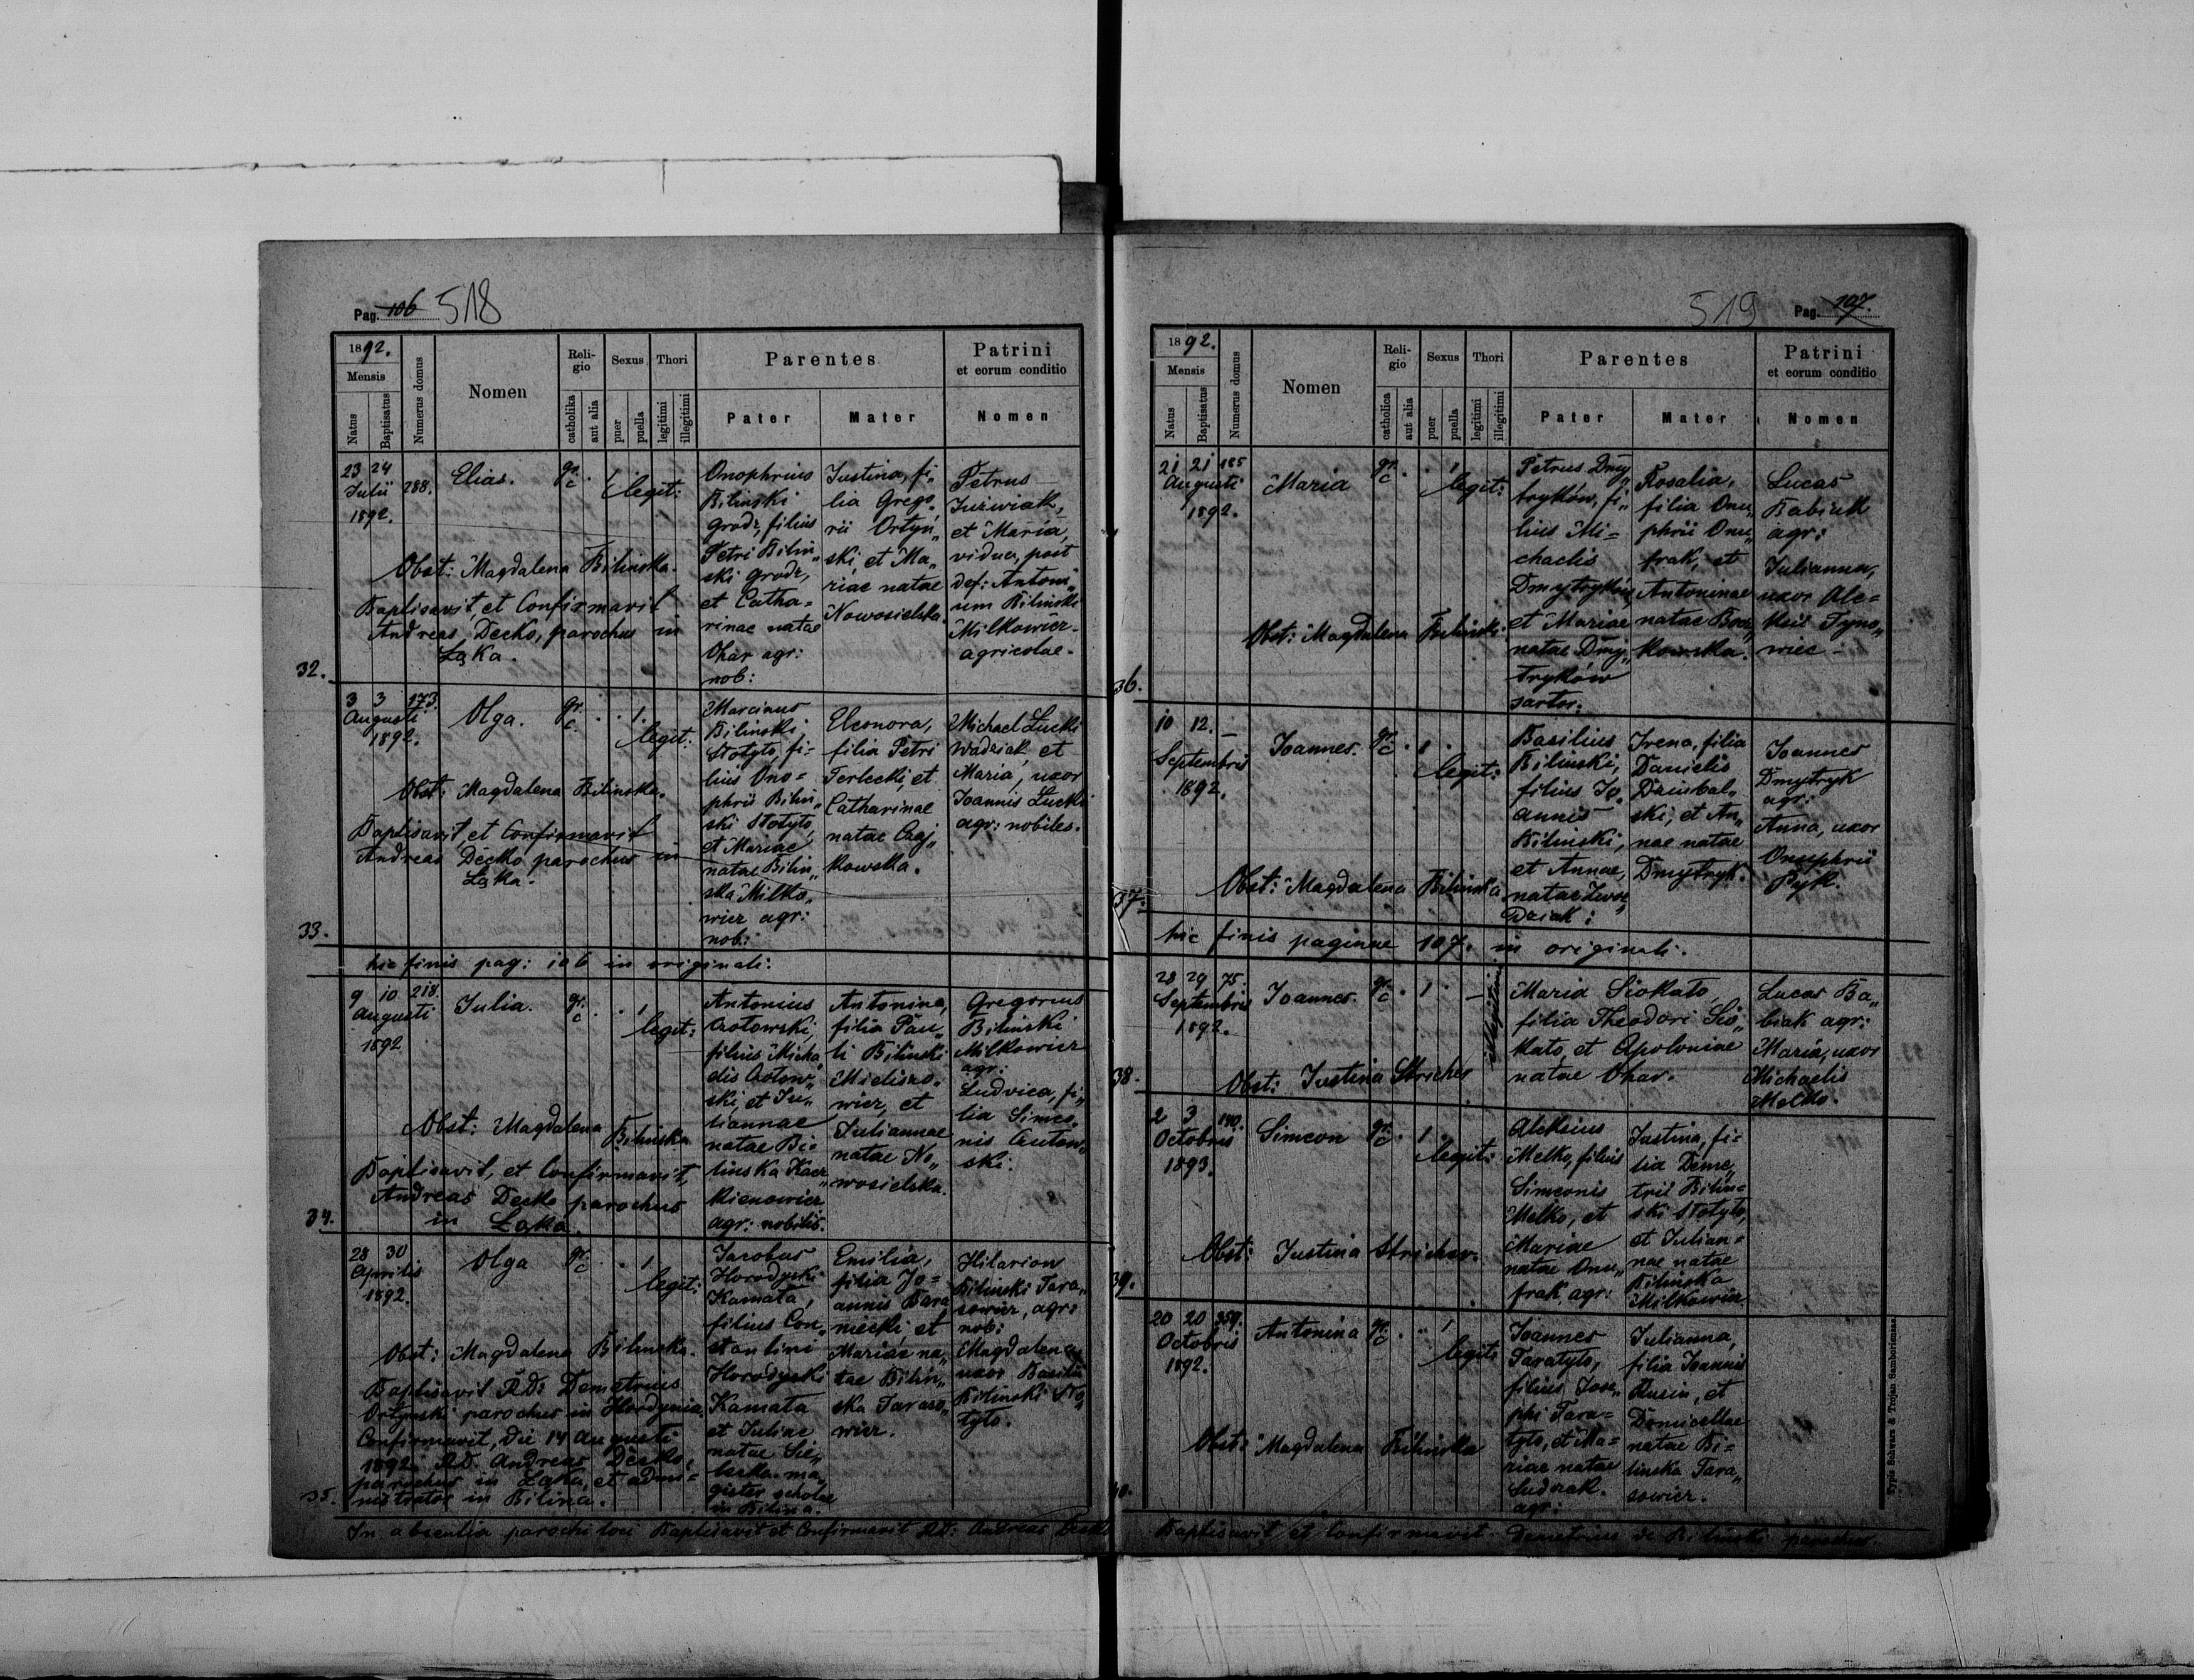 Pag. 106 518
1892.
Mensis
Natus
Baptisatus
Numerus domus
Nomen
Reli-
gio
catholika
aut alia
Sexus
puer
puella
Thori
legitimi
illegitimi
Parentes
Pater
Mater
Patrini
et eorum conditio
Nomen
32.
23 24
Julii
1892.
288.
Elias.
gr.
c.
legit:
Onophrius
Biliński
grodz, filius
Petri Biliń„
ski grodz,
et Catha=
rinae natae
Ohar agr:
nob:
Justina, fi„
lia Grego„
rii Ortyń„
ski, et Ma„
riae natae
Nowosielska.
Petrus
Juźwiak,
et Maria,
vidua, post
def: Antoni„
um Biliński
Milkowicz
agricolae.
Obst: Magdalena Bilinska.
Baptisavit, et Confirmavit
Andreas Dećko, parochus in
Łąka.
33.
3 3 173.
Augusti
1892.
Olga.
gr.
c.
1.
legit:
Marcianus
Bilinski
Stotyto, fi=
lius Ono=
phrii Biliń„
ski Stotyto,
et Mariae
natae Biliń„
ska Milko„
wicz agr:
nob:
Eleonora,
filia Petri
Terlecki, et
Catharinae
natae Czaj„
kowska.
Michael Łucki
Wadziak, et
Maria, uxor
Joannis Łucki
agr: nobiles.
Obst: Magdalena Bilinska.
Baptisavit, et Confirmavit
Andreas Dećko parochus in
Łąka.
hic finis pag: 106 in originali.
34.
9 10 218.
Augusti
1892
Julia.
gr.
c.
1
legit:
Antonius
filius Micha„
ski, et Ju„
liannae
natae Bi=
linska Kacz„
mienowicz
agr: nobilis.
Antonina,
filia Pau„
li Bilinski
wicz, et
Juliannae
natae No„
wosielska.
Gregorius
Biliński
Milkowicz
agr:
Ludvica, fi„
lia Simeo„
nis
ski.
Obst: Magdalena Bilinska
Baptisavit, et Confirmavit,
Andreas Decko parochus
in Łąka.
35.
28 30
Aprilis
1892.
Olga
gr.
c.
1
legit:
Jacobus
Horodyski
Kamata,
filius Con„
stantini
Horodyski
Kamata
et Juliae
natae
ma„
gister scholae
in Bilina.
Emilia,
filia Jo=
annis Bara„
niecki, et
Mariae na„
tae Biliń„
ska Taraso„
wicz.
Hilarion
Biliński Tara„
sowicz, agr:
nob:
Magdalena
uxor Basilii
Biliński Sto„
tyto.
Obst: Magdalena Bilinska.
Baptisavit RD: Demetrius
Ortynski parochus in Hordynia.
Confirmavit, die 14 Augusti
1892. RD. Andreas Dećko,
parochus in Łąka, et admi=
nistrator in Bilina.
In absentia parochi loci Baptisavit et Confirmavit RD: Andreas Dećko
519 Pag. 107.
1892.
Mensis
Natus
Baptisatus
Numerus domus
Nomen
Reli-
gio
catholica
aut alia
Sexus
puer
puella
Thori
legitimi
illegitimi
Parentes
Pater
Mater
Patrini
et eorum conditio
Nomen
36.
21 21 185
Augusti
1892.
Maria
gr.
c.
1
legit:
Petrus Dmy„
tryków, fi„
lius Mi=
chaelis
Dmytryków,
et Mariae
natae Dmy„
tryków
sartor.
Rosalia,
filia Onu„
phrii Onu„
frak, et
Antoninae
natae
kowska.
Lucas
Babiak
agr:
Julianna,
uxor Ale=
xii Tyno„
wiec
Obst: Magdalena Bilinski
37.
10 12.
Septembris
1892.
Joannes.
gr.
c.
1
legit:
Basilius
Biliński,
filius Jo„
annis
Biliński,
et Annae,
natae
Irena, filia
Danielis
Dziubal„
ski, et An„
nae natae
Dmytryk.
Joannes
Dmytryk
agr:
Anna, uxor
Onuphrii
Pyk.
Obst: Magdalena Bilinska
hic finis paginae 107. in originali.
38.
28 29 75.
Septembris
1892.
Joannes.
gr.
c.
1
illegitimi
Maria Siokato,
filia Theodori Sio„
kato, et Apoloniae
natae Ohar.
Lucas Ba„
biak agr:
Maria, uxor
Michaelis
Melko.
Obst: Justina Stricher
39.
2 3 140.
Octobris
1893.
Simeon
gr.
c.
1
legit:
Aleksius
Melko, filius
Simeonis
Melko, et
Mariae
natae Onu„
frak, agr:
Justina, fi=
lia Deme„
trii Biliń=
ski Stotyto,
et Julian=
nae natae
Bilinska
Milkowicz.
Obst: Justina Stricher.
40.
20 20 359.
Octobris
1892.
Antonina
gr.
c.
1
legit:
Joannes
Taratyto,
filius Jose„
phi Tara=
tyto, et Ma=
riae natae
Sudzak.
agr:
Julianna,
filia Joannis
Rusin, et
Domicellae
natae Bi=
linska Tara„
sowicz.
Obst: Magdalena Bilinska
Baptisavit, et Confirmavit Demetrius de Biliński parochus.
Typis Schwarz & Trojan Samboriensæ